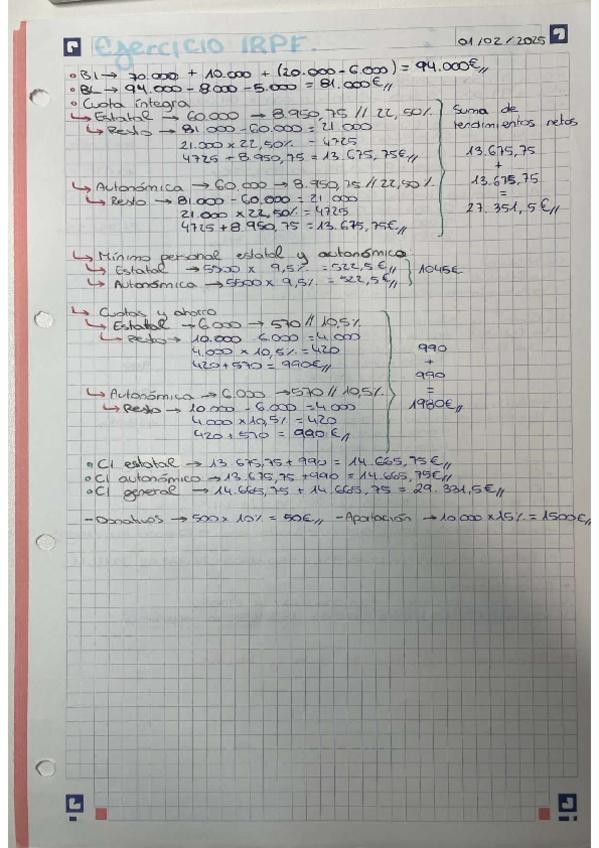 Ejercicio IRPF.
01/02/2025
• BI → 70.000 + 10.000 + (20.000 - 6.000) = 94.000€//
• BL → 94.000 - 8.000 - 5.000 = 81.000€//
• Cuota íntegra
↳ Estatal → 60.000 → 8.950,75 // 22,50%
↳ Resto → 81.000 - 60.000 = 21.000
21.000 x 22,50% = 4725
4725 + 8.950,75 = 13.675,75€//
↳ Autonómica → 60.000 → 8.950,75 // 22,50%
↳ Resto → 81.000 - 60.000 = 21.000
21.000 x 22,50% = 4725
4725 + 8.950,75 = 13.675,75€//
Suma de
rendimientos netos
13.675,75
+
13.675,75
=
27.351,5€//
↳ Mínimo personal estatal y autonómica:
↳ Estatal → 5500 x 9,5% = 522,5€//
↳ Autonómica → 5500 x 9,5% = 522,5€//
1045€
↳ Cuotas y ahorro
↳ Estatal → 6.000 → 570 // 10,5%
↳ Resto → 10.000 - 6.000 = 4.000
4.000 x 10,5% = 420
420 + 570 = 990€//
↳ Autonómica → 6.000 → 570 // 10,5%
↳ Resto → 10.000 - 6.000 = 4.000
4.000 x 10,5% = 420
420 + 570 = 990€//
990
+
990
=
1980€//
• CI estatal → 13.675,75 + 990 = 14.665,75€//
• CI autonómico → 13.675,75 + 990 = 14.665,75€//
• CI general → 14.665,75 + 14.665,75 = 29.331,5€//
- Donativos → 500 x 10% = 50€// - Aportación → 10.000 x 15% = 1500€//